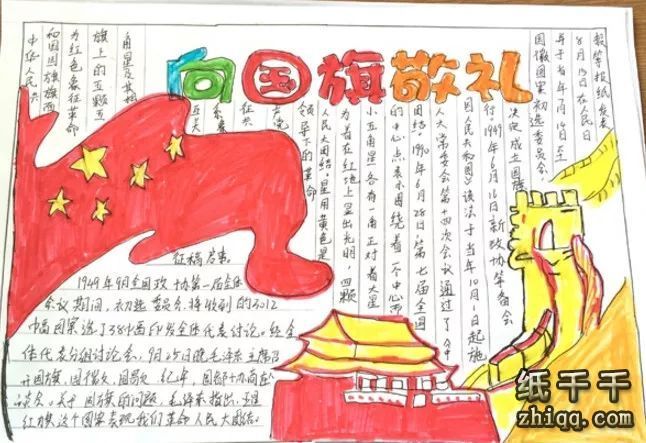 向国旗敬礼
中华人民共
和国国旗旗面
为红色象征革命
旗上的五颗五
角星及其相
互关
系象
征共
产党
领导下的革命
人民大团结,星用黄色是
为着在红地上显出光明,四颗
小五角星各有一角正对着大星
的中心点表示围绕着一个中心而
团结。1990年6月28日第七届全国
人大常委会第十四次会议通过了《中
国人民共和国》该法于当年10月1日起施
行。1949年6月16日新政协筹备会
决定成立国旗
国徽图案初选委员会,
并于当年7月14日至
8月15日在人民日
报等报纸发表
征稿启事。
1949年9月全国政协第一届全体
会议期间,初选委员会将收到的3012
幅图案选了38幅印发全体代表讨论。经全
体代表分组讨论会,9月25日晚毛泽东主席召
开国旗,国徽,国歌 纪年,国都协商座
谈会。关于国旗的问题,毛泽东指出:五星
红旗这个图案表现我们革命人民大团结。
纸千千
zhiqq.com